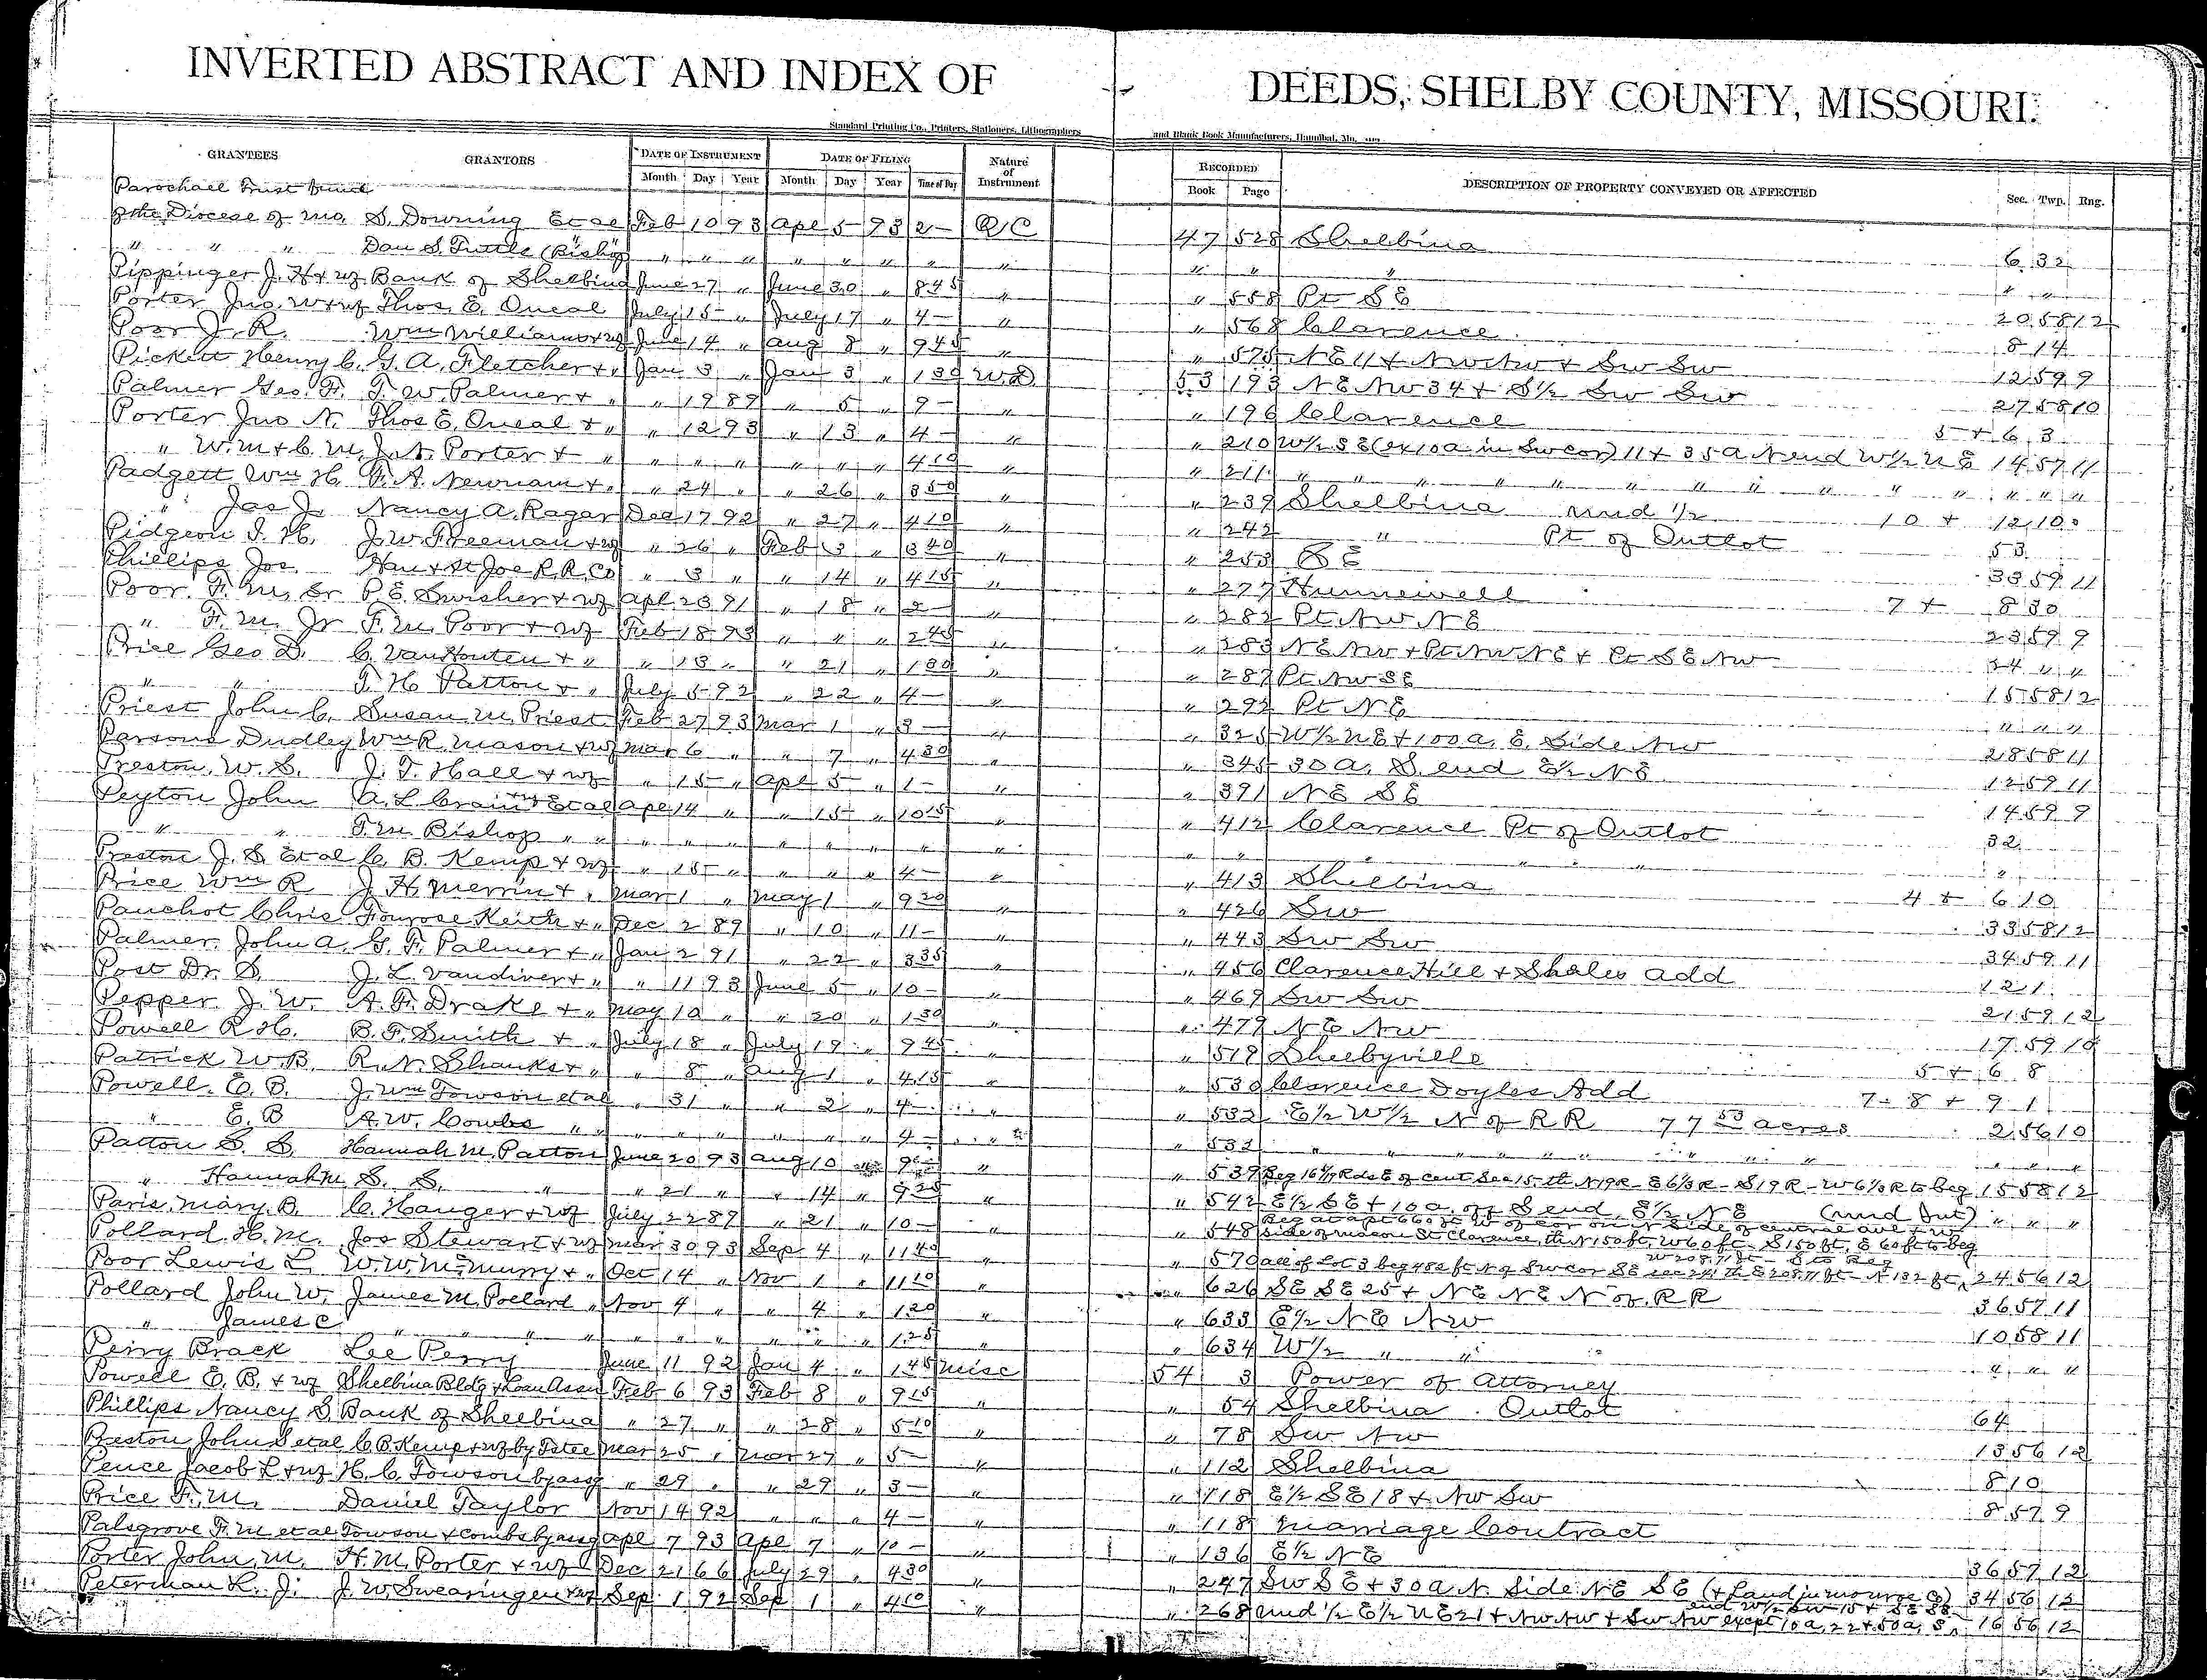 INVERTED ABSTRACT AND INDEX OF DEEDS, SHELBY COUNTY, MISSOURI.
Standard Printing Co., Printers, Stationers, Lithographers and Blank Book Manufacturers, Hannibal, Mo.
GRANTEES GRANTORS DATE OF INSTRUMENT DATE OF FILING Nature of Instrument RECORDED DESCRIPTION OF PROPERTY CONVEYED OR AFFECTED Sec. Twp. Rng.
Month Day Year Month Day Year Time of Day Book Page
Parochael Trust Fund
of the Diocese of Mo. S. Downing Et al Feb 10 93 Apl 5 93 2- QC 47 528 Shelbina 6 32
" " " Dan S. Tuttle (Bishop) " " " " " " " " " " " " "
Pippinger J. H & wf Bank of Shelbina June 27 " June 30 " 8 45 " " 558 Pt SE 20 58 12
Porter Jno. W & wf Thos. E. Oneal July 15 " July 17 " 4- " " 568 Clarence 8 14
Poor J. R. Wm Williams & wf June 14 " Aug 8 " 9 45 " " 575 NE 11 & NW NW & SW SW 12 59 9
Pickett Henry C. G. A. Fletcher & " Jan 3 " Jan 3 " 1 30 W.D 53 193 NE NW 34 & S½ SW SW 27 58 10
Palmer Geo. F. T. W. Palmer & " " 19 89 " 5 " 9- " " 196 Clarence 5 & 6 3
Porter Jno N. Thos E. Oneal & " " 12 93 " 13 " 4- " " 210 W½ SE (ex 10a in SW cor) 11 & 35 a N end W½ NE 14 57 11
" W. M & C. M. J. N. Porter & " " " " " " " 4 10 " " 211 " " " " " " " " " " " " "
Padgett Wm H. F. A. Newnam & " " 24 " " 26 " 3 50 " " 239 Shelbina und ½ 10 & 12 10
" Jas J. Nancy A. Ragar Dec 17 92 " 27 " 4 10 " " 242 " Pt of Outlot 53
Pidgeon I. H. J. W. Freeman & wf " 26 " Feb 3 " 3 40 " " 253 SE 33 59 11
Phillips Jos. Han & St Joe R. R. Co " 3 " " 14 " 4 15 " " 277 Hunnewell 7 & 8 30
Poor. F. M. Sr P. E. Swisher & wf Apl 23 91 " 18 " 2- " " 282 Pt NW NE 23 59 9
" F. M. Jr F. M. Poor & wf Feb 18 93 " " " 2 45 " " 283 NE NW & Pt NW NE & Pt SE NW 24 " "
Price Geo D. C. VanHouten & " " 13 " " 21 " 1 30 " " 287 Pt NW SE 15 58 12
" " T. H Patton & " July 5 92 " 22 " 4- " " 292 Pt NE " " "
Priest John C. Susan M. Priest Feb 27 93 Mar 1 " 3- " " 325 W½ NE & 100 a. E. Side NW 28 58 11
Parsons Dudley Wm R. Mason & wf Mar 6 " " 7 " 4 30 " " 345 30 a. S. end E½ NE 12 59 11
Preston, W. S. J. T. Hall & wf " 15 " Apl 5 " 1- " " 391 NE SE 14 59 9
Peyton John A. L. Crain Et al Apl 14 " " 15 " 10 15 " " 412 Clarence Pt of Outlot 32
" " T. M Bishop " " " " " " " " " " " " " " " " "
Preston J. S. Et al C. B. Kemp & wf " 15 " " " " 4- " " 413 Shelbina 4 & 6 10
Price Wm R J. H. Merrin & " Mar 1 " May 1 " 9 20 " " 426 SW 33 58 12
Pauchot Chris Fonrose Keith & " Dec 2 89 " 10 " 11- " " 443 SW SW 34 59 11
Palmer. John A. G. F. Palmer & " Jan 2 91 " 22 " 3 35 " " 456 Clarence Hill & Shales Add 12 1
Post Dr. S. J. L. Vandiver & " " 11 93 June 5 " 10- " " 469 SW SW 21 59 12
Pepper J. W. A. F. Drake & " May 10 " " 20 " 1 30 " " 479 NE NW 17 59 10
Powell R H. B. F. Smith & " July 18 " July 19 " 9 45 " " 519 Shelbyville 5 & 6 8
Patrick W. B. R. N. Shanks & " " 8 " Aug 1 " 4 15 " " 530 Clarence Doyles Add 7- 8 & 9 1
Powell. E. B. J. Wm Towson et al " 31 " " 2 " 4- " " 532 E½ W½ N of RR 77 53 acres 2 56 10
" E. B A. W. Combs " " " " " " " " 4- " " 532 " " " " " " " " " " "
Patton S. S. Hannah M. Patton June 20 93 Aug 10 " 9 " " 539 Beg 16 Rds E of cent Sec 15. th N 19 R - E 6⅓ R - S 19 R - W 6⅓ R to beg 15 58 12
" Hannah M. S. S. " " 21 " " 14 " 9 25 " " 542 E½ SE & 10 a. off S end. E½ NE (und Int) " " "
Paris, Mary. B. C. Hanger & wf July 22 89 " 21 " 10- " " 548 Beg at a pt 660 ft W of cor on N Side of central ave & W
side of Macon St Clarence, th N 150 ft, W 60 ft - S 150 ft, E 60 ft to beg
Pollard. H. M. Jas Stewart & wf Mar 30 93 Sep 4 " 11 40 " " 570 all of Lot 3 beg 482 ft N of SW cor SE sec 24 th E 208.71 ft - N 132 ft, W 208.71 ft - S to Beg 24 56 12
Poor Lewis L. W. W. McMurry & " Oct 14 " Nov 1 " 11 10 " " 626 SE SE 25 & NE NE N of RR 36 57 11
Pollard John W. James M. Pollard " Nov 4 " " 4 " 1 20 " " 633 E½ NE NW 10 58 11
" James C " " " " " " " " " " 1 25 " " 634 W½ " " " " "
Perry Brack Lee Perry June 11 92 Jan 4 " 1 45 Misc 54 3 Power of Attorney
Powell E. B. & wf Shelbina Bldg & Loan Assn Feb 6 93 Feb 8 " 9 15 " " 54 Shelbina Outlot 64
Phillips, Nancy S. Bank of Shelbina " 27 " " 28 " 5 10 " " 78 SW NW 13 56 12
Preston John S et al C. B. Kemp & wf by Trstee Mar 25 " Mar 27 " 5- " " 112 Shelbina 8 10
Pence Jacob L & wf H. C. Towson by assg " 29 " " 29 " 3- " " 118 E½ SE 18 & NW SW 8 57 9
Price F. M. Daniel Taylor Nov 14 92 " " " 4- " " 118 Marriage Contract
Palsgrove F. M et al Towson & Combs by assg Apl 7 93 Apl 7 " 10- " " 136 E½ NE 36 57 12
Porter John. M. H. M. Porter & wf Dec 21 66 July 29 " 4 30 " " 247 SW SE & 30 a N. Side NE SE (& Land in Monroe Co) 34 56 12
Peterman L. J. J. W. Swearingen & wf Sep 1 92 Sep 1 " 4 10 " " 268 und ½ E½ NE 21 & NW NW & SW NW except 10 a, 22 & 50 a, S end W½ SW 15 & SE SE 16 56 12